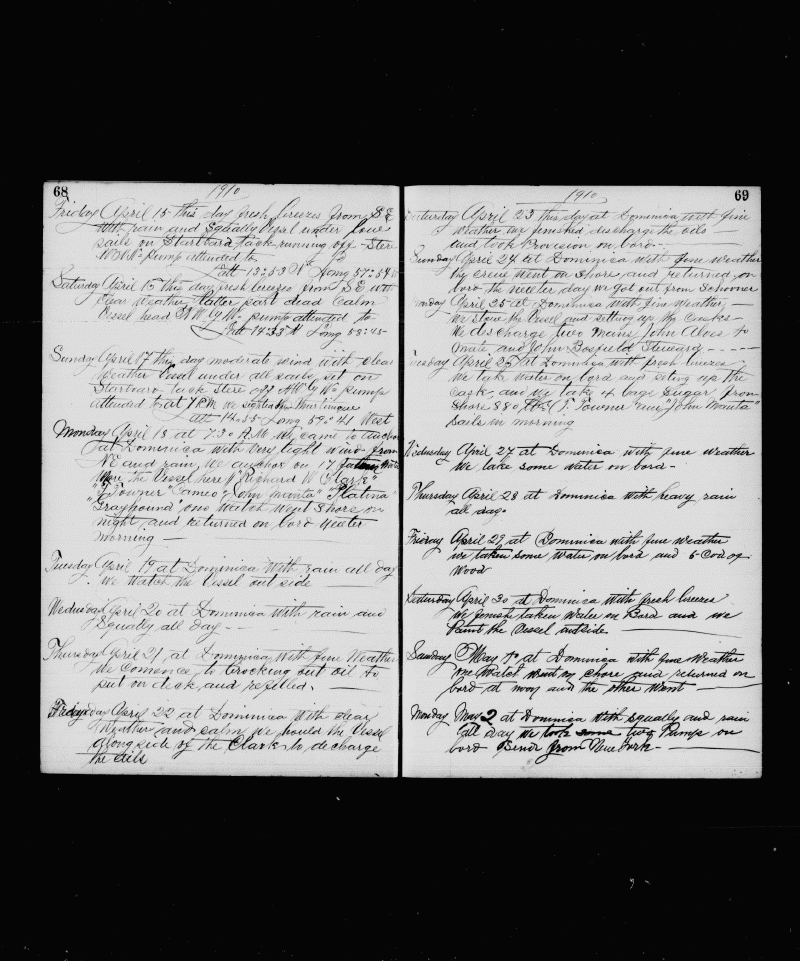 68
1910
Friday April 15 this day fresh breezes from S E
with rain and Squally Vessel under four
sails on Starboard tack running off - Stere
W pump attended to
Latt 13=53 N Long 57=54
Saturday April 15 this day fresh breezes from S E with
clear weather latter part dead calm
Vessel head N W by W pump attended to
Latt 14=33 N Long 58=45
Sunday April 17 this day moderate wind with clear
weather Vessel under all sails set on
Starboard tack stere off N W by W pump
attended to at 7 P.M. we sighted
Latt 14=55 Long 59=41 West
Monday April 18 at 7=30 A.M we came to anchor
at Dominica with very light wind from
N E and rain we anchor on 17
Were the Vessel here "Richard W Clark"
"T Towner" Cameo "John Manta" "Platina"
"Grayhound" one watch went shore in
night and returned on bord
morning —
Tuesday April 19 at Dominica with rain all day
We watch the Vessel out side —
Wednesday April 20 at Dominica with rain and
Squally all day - -
Thursday April 21 at Dominica with fine weather
We comence to brocking out oil to
put on deck and refilled.
Friday April 22 at Dominica with clear
weather and calm we hauld the Vessel
along side of the Clark to decharge
the oils
69
1910
Saturday April 23 this day at Dominica with fine
weather we finished discharge the oils —
and took Provision on bord -
Sunday April 24 at Dominica with fine weather
the crew went on shore and returned on
bord the we got out from Schooner
Monday April 25 at Dominica with fine weather —
We stow the Vessel and setting up the casks
We discharge two mans John Alves
mate and John Steward - - - -
Tuesday April 26 at Dominica with fresh breezes
We take water on bord and seting up the
cask and we take 4 bags sugar from
shore 880 "T. Towner" and "John Manta"
sails in morning
Wednesday April 27 at Dominica with fine weather
We take some water on bord -
Thursday April 28 at Dominica with heavy rain
all day.
Friday April 29 at Dominica with fine weather
we taken some water on bord and 5 Cod of
Wood
Saturday April 30 at Dominica with fresh breezes
We finish taken water on Bord and we
Paint the Vessel outside —
Sunday May 1st at Dominica with fine weather
one watch went on shore and returned on
bord at noon and the other went —
Monday May 2 at Dominica with squally and rain
all day we took some two Pumps on
bord Send from New York - —